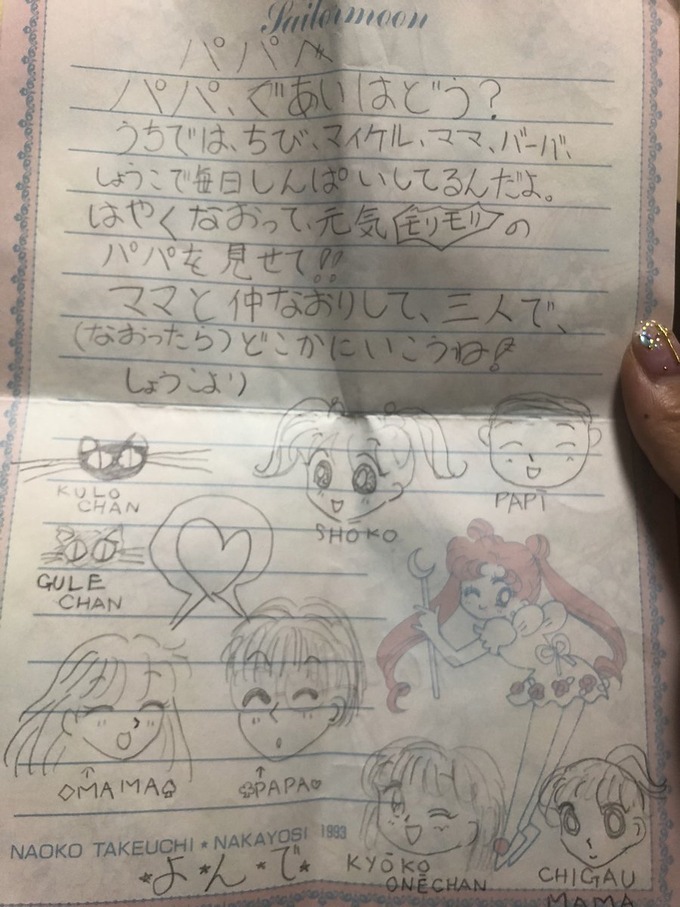 Sailormoon
パパへ
パパ、ぐあいはどう?
うちでは、ちび、マイケル、ママ、バーバ、
しょうこで毎日しんぱいしてるんだよ。
はやくなおって、元気モリモリの
パパを見せて!!
ママと仲なおりして、三人で、
(なおったら)どこかにいこうね!
しょうこより
KULO
CHAN
SHOKO
PAPI
GULE
CHAN
◇MAMA♤
♧PAPA♡
NAOKO TAKEUCHI * NAKAYOSI 1993
*よ*ん*で*
KYŌKO
ONĒCHAN
CHIGAU
MAMA